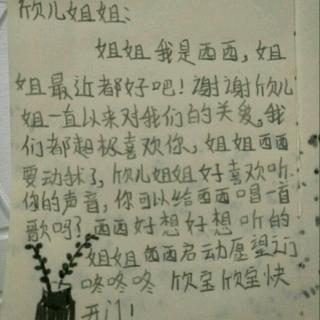 欣儿姐姐:
姐姐我是西西,姐
姐最近都好吧!谢谢欣儿
姐一直以来对我们的关爱,我
们都超极喜欢你,姐姐西西
要动手术了,欣儿姐姐好喜欢听
你的声音,你可以给西西唱一首
歌吗?西西好想好想听的
姐姐西西启动愿望之门
咚咚咚 欣宝欣宝快
开门!